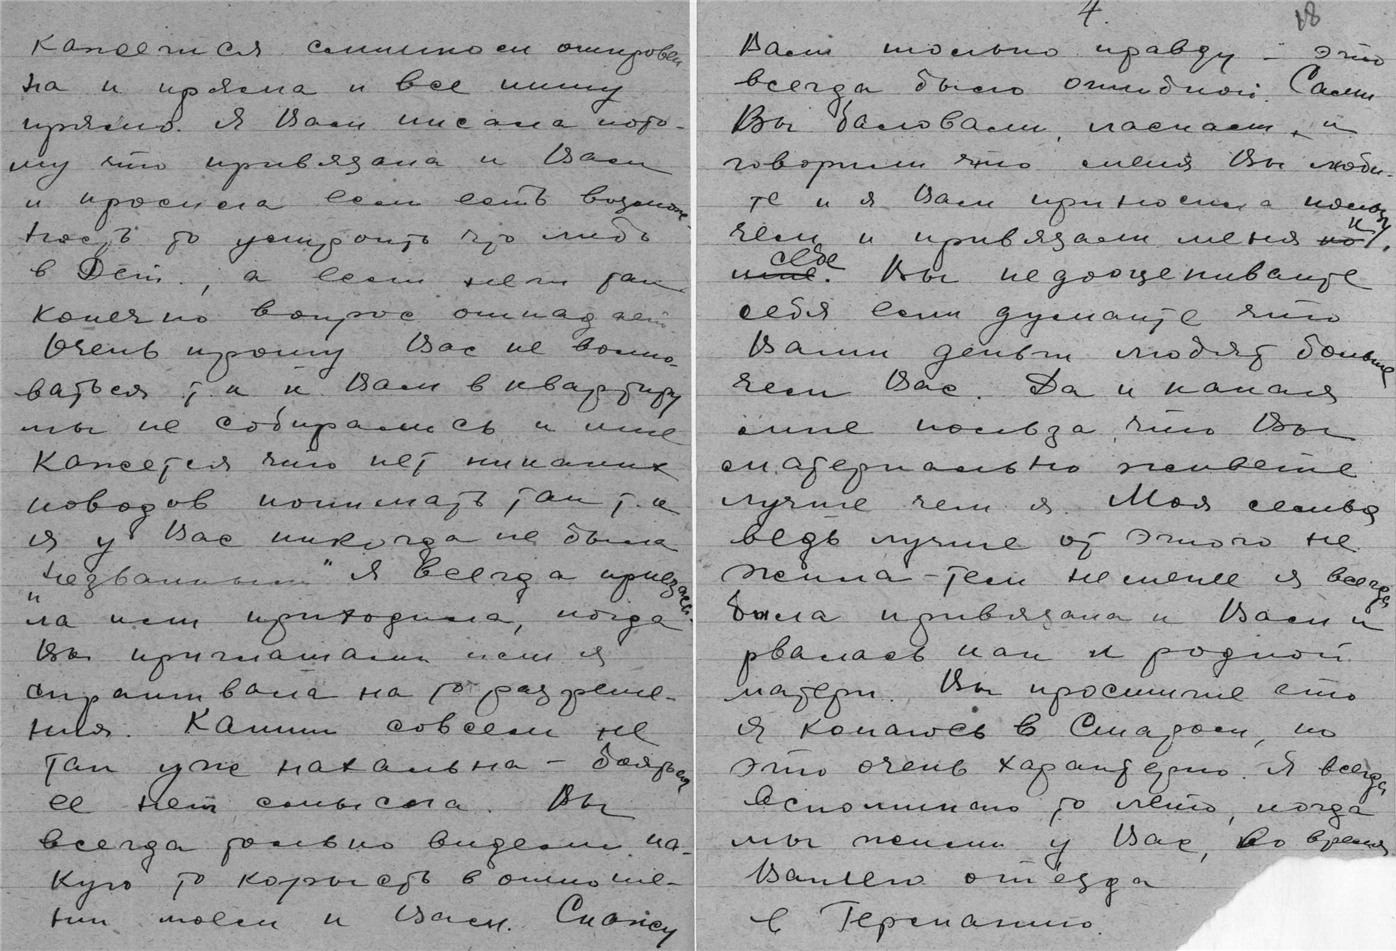 кажется слишком откровен
на и пряма и все пишу
прямо. Я Вам писала пото-
му что привязана к Вам
и просила если есть возмож-
ность то устроить что либо
в Дет., а если нет так
конечно вопрос отпадает
Очень прошу Вас не волно-
ваться т. к. к Вам в квартиру
мы не собирались и мне
кажется что нет никаких
поводов понимать так т. к
я у Вас никогда не была
незванным" Я всегда приезжа-
"ла или приходила, когда
Вы приглашали или я
спрашивала на то разреше-
ния. Камин совсем не
так уже нахальна – бояться
ее нет смысла. Вы
всегда только видели ка-
кую то корысть в отноше-
нии моем к Вам. Скажу
4. 18
Вам только правду – это
всегда было ошибкой. Сами
Вы баловали, ласкали, и
говорили что меня Вы люби-
те и я Вам приносила пользу,
чем и привязали меня к
себе. Вы недооцениваете
себя если думаете что
Ваши деньги любят больше
чем Вас. Да и какая
мне польза, что Вы
материально живете
лучше чем я. Моя семья
ведь лучше от этого не
жила – тем не менее я всегда
была привязана к Вам и
рвалась как к родной
матери. Вы простите что
я копаюсь в старом, но
это очень характерно. Я всегда
вспоминаю то лето, когда
мы жили у Вас, во время
Вашего отъезда
в Германию.